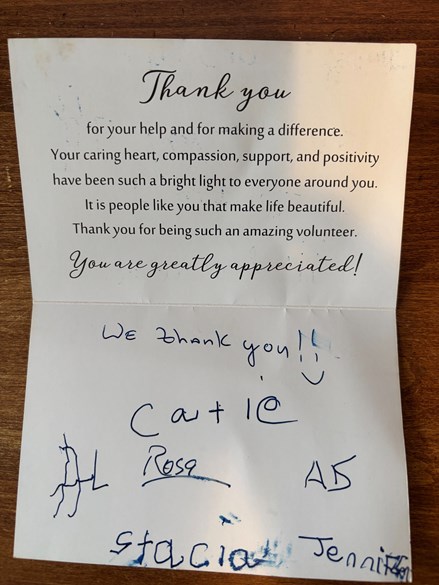 Thank you
for your help and for making a difference.
Your caring heart, compassion, support, and positivity
have been such a bright light to everyone around you.
It is people like you that make life beautiful.
Thank you for being such an amazing volunteer.
You are greatly appreciated!
We thank you!!
Catie
Rosa
AB
Stacia Jennifer